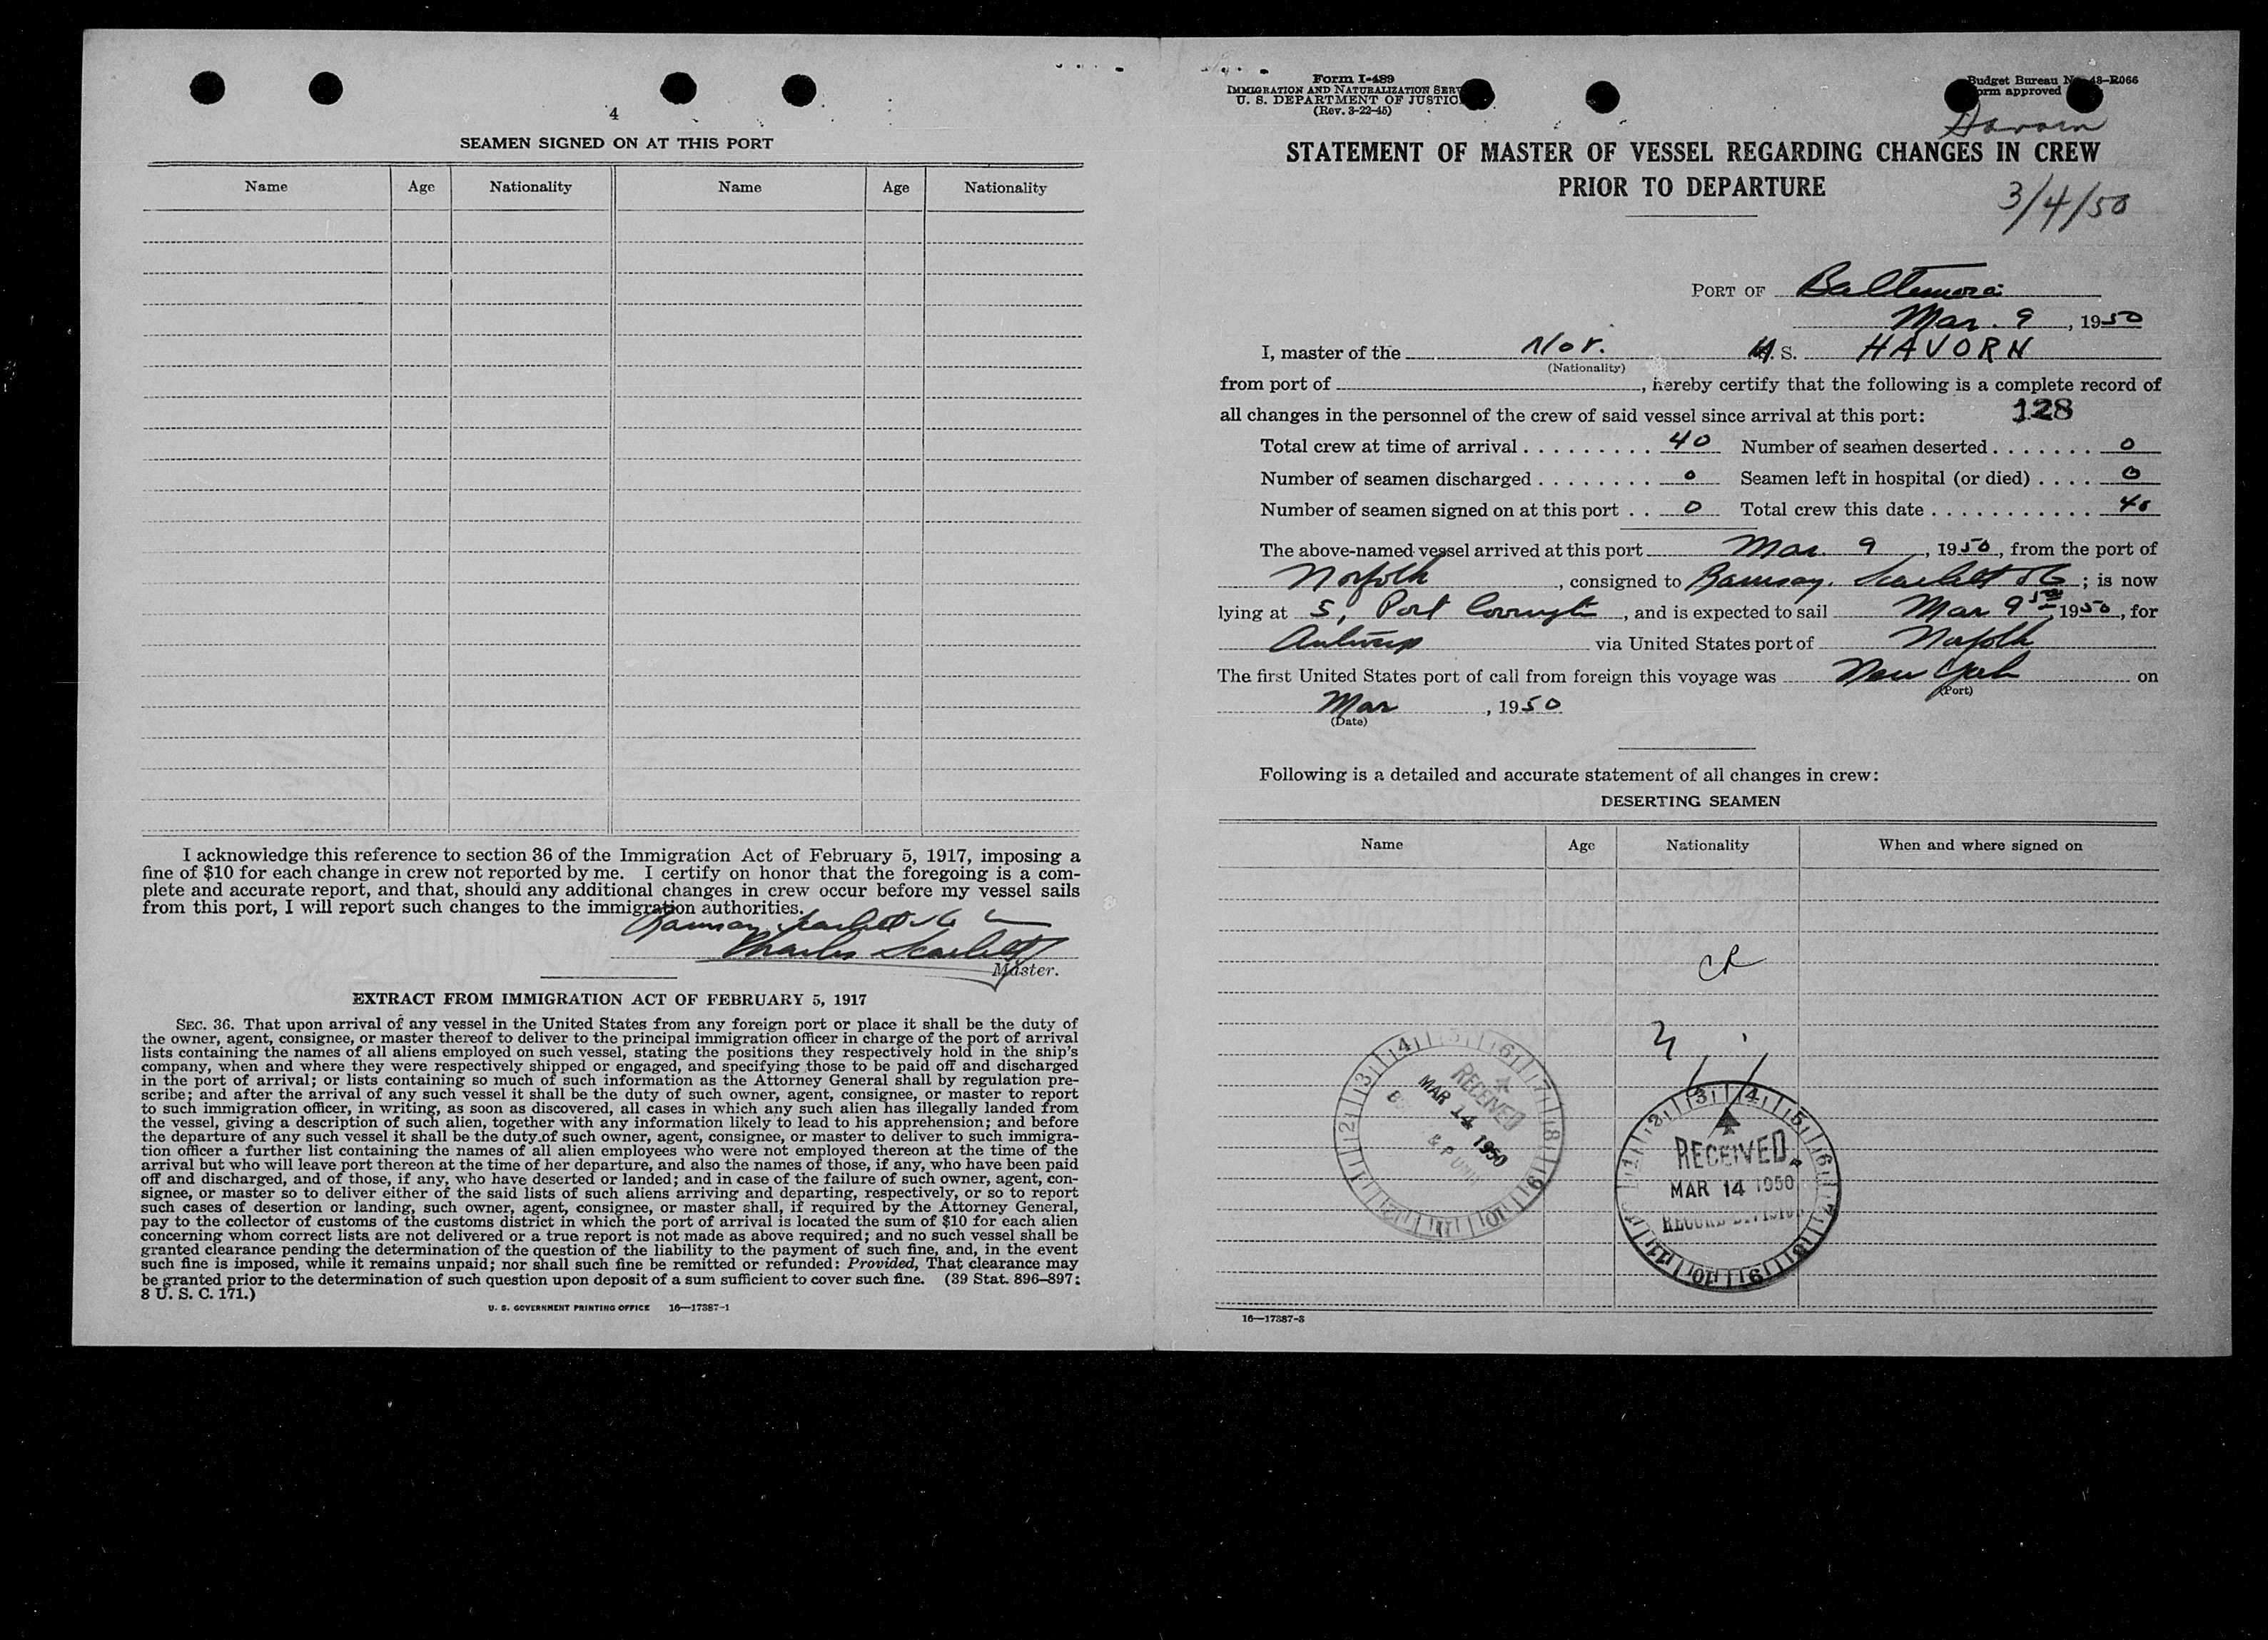 4
SEAMEN SIGNED ON AT THIS PORT
Name Age Nationality Name Age Nationality
I acknowledge this reference to section 36 of the Immigration Act of February 5, 1917, imposing a
fine of $10 for each change in crew not reported by me. I certify on honor that the foregoing is a com-
plete and accurate report, and that, should any additional changes in crew occur before my vessel sails
from this port, I will report such changes to the immigration authorities.
Ramsay, Scarlett & Co
Charles Scarlett
Master.
EXTRACT FROM IMMIGRATION ACT OF FEBRUARY 5, 1917
SEC. 36. That upon arrival of any vessel in the United States from any foreign port or place it shall be the duty of
the owner, agent, consignee, or master thereof to deliver to the principal immigration officer in charge of the port of arrival
lists containing the names of all aliens employed on such vessel, stating the positions they respectively hold in the ship's
company, when and where they were respectively shipped or engaged, and specifying those to be paid off and discharged
in the port of arrival; or lists containing so much of such information as the Attorney General shall by regulation pre-
scribe; and after the arrival of any such vessel it shall be the duty of such owner, agent, consignee, or master to report
to such immigration officer, in writing, as soon as discovered, all cases in which any such alien has illegally landed from
the vessel, giving a description of such alien, together with any information likely to lead to his apprehension; and before
the departure of any such vessel it shall be the duty of such owner, agent, consignee, or master to deliver to such immigra-
tion officer a further list containing the names of all alien employees who were not employed thereon at the time of the
arrival but who will leave port thereon at the time of her departure, and also the names of those, if any, who have been paid
off and discharged, and of those, if any, who have deserted or landed; and in case of the failure of such owner, agent, con-
signee, or master so to deliver either of the said lists of such aliens arriving and departing, respectively, or so to report
such cases of desertion or landing, such owner, agent, consignee, or master shall, if required by the Attorney General,
pay to the collector of customs of the customs district in which the port of arrival is located the sum of $10 for each alien
concerning whom correct lists are not delivered or a true report is not made as above required; and no such vessel shall be
granted clearance pending the determination of the question of the liability to the payment of such fine, and, in the event
such fine is imposed, while it remains unpaid; nor shall such fine be remitted or refunded: Provided, That clearance may
be granted prior to the determination of such question upon deposit of a sum sufficient to cover such fine. (39 Stat. 896–897;
8 U. S. C. 171.)
U. S. GOVERNMENT PRINTING OFFICE 16—17387-1
Form I-489
IMMIGRATION AND NATURALIZATION SERV
U. S. DEPARTMENT OF JUSTIC
(Rev. 3-22-45)
Budget Bureau No. 43-R066
orm approved
Havorn
STATEMENT OF MASTER OF VESSEL REGARDING CHANGES IN CREW
PRIOR TO DEPARTURE
3/4/50
PORT OF Baltimore
Mar. 9, 1950
I, master of the Nor. M. S. HAVORN
(Nationality)
from port of , hereby certify that the following is a complete record of
all changes in the personnel of the crew of said vessel since arrival at this port: 128
Total crew at time of arrival 40 Number of seamen deserted 0
Number of seamen discharged 0 Seamen left in hospital (or died) 0
Number of seamen signed on at this port 0 Total crew this date 40
The above-named vessel arrived at this port Mar. 9, 1950, from the port of
Norfolk, consigned to Ramsay, Scarlett & Co; is now
lying at 5, Port Covington, and is expected to sail Mar 9 1950, for
Antwerp via United States port of Norfolk
The first United States port of call from foreign this voyage was New York on
(Port)
Mar, 1950
(Date)
Following is a detailed and accurate statement of all changes in crew:
DESERTING SEAMEN
Name Age Nationality When and where signed on
CR
RECEIVED
MAR 14 1950
RECEIVED
MAR 14 1950
RECORD DIVISION
16—17387-3